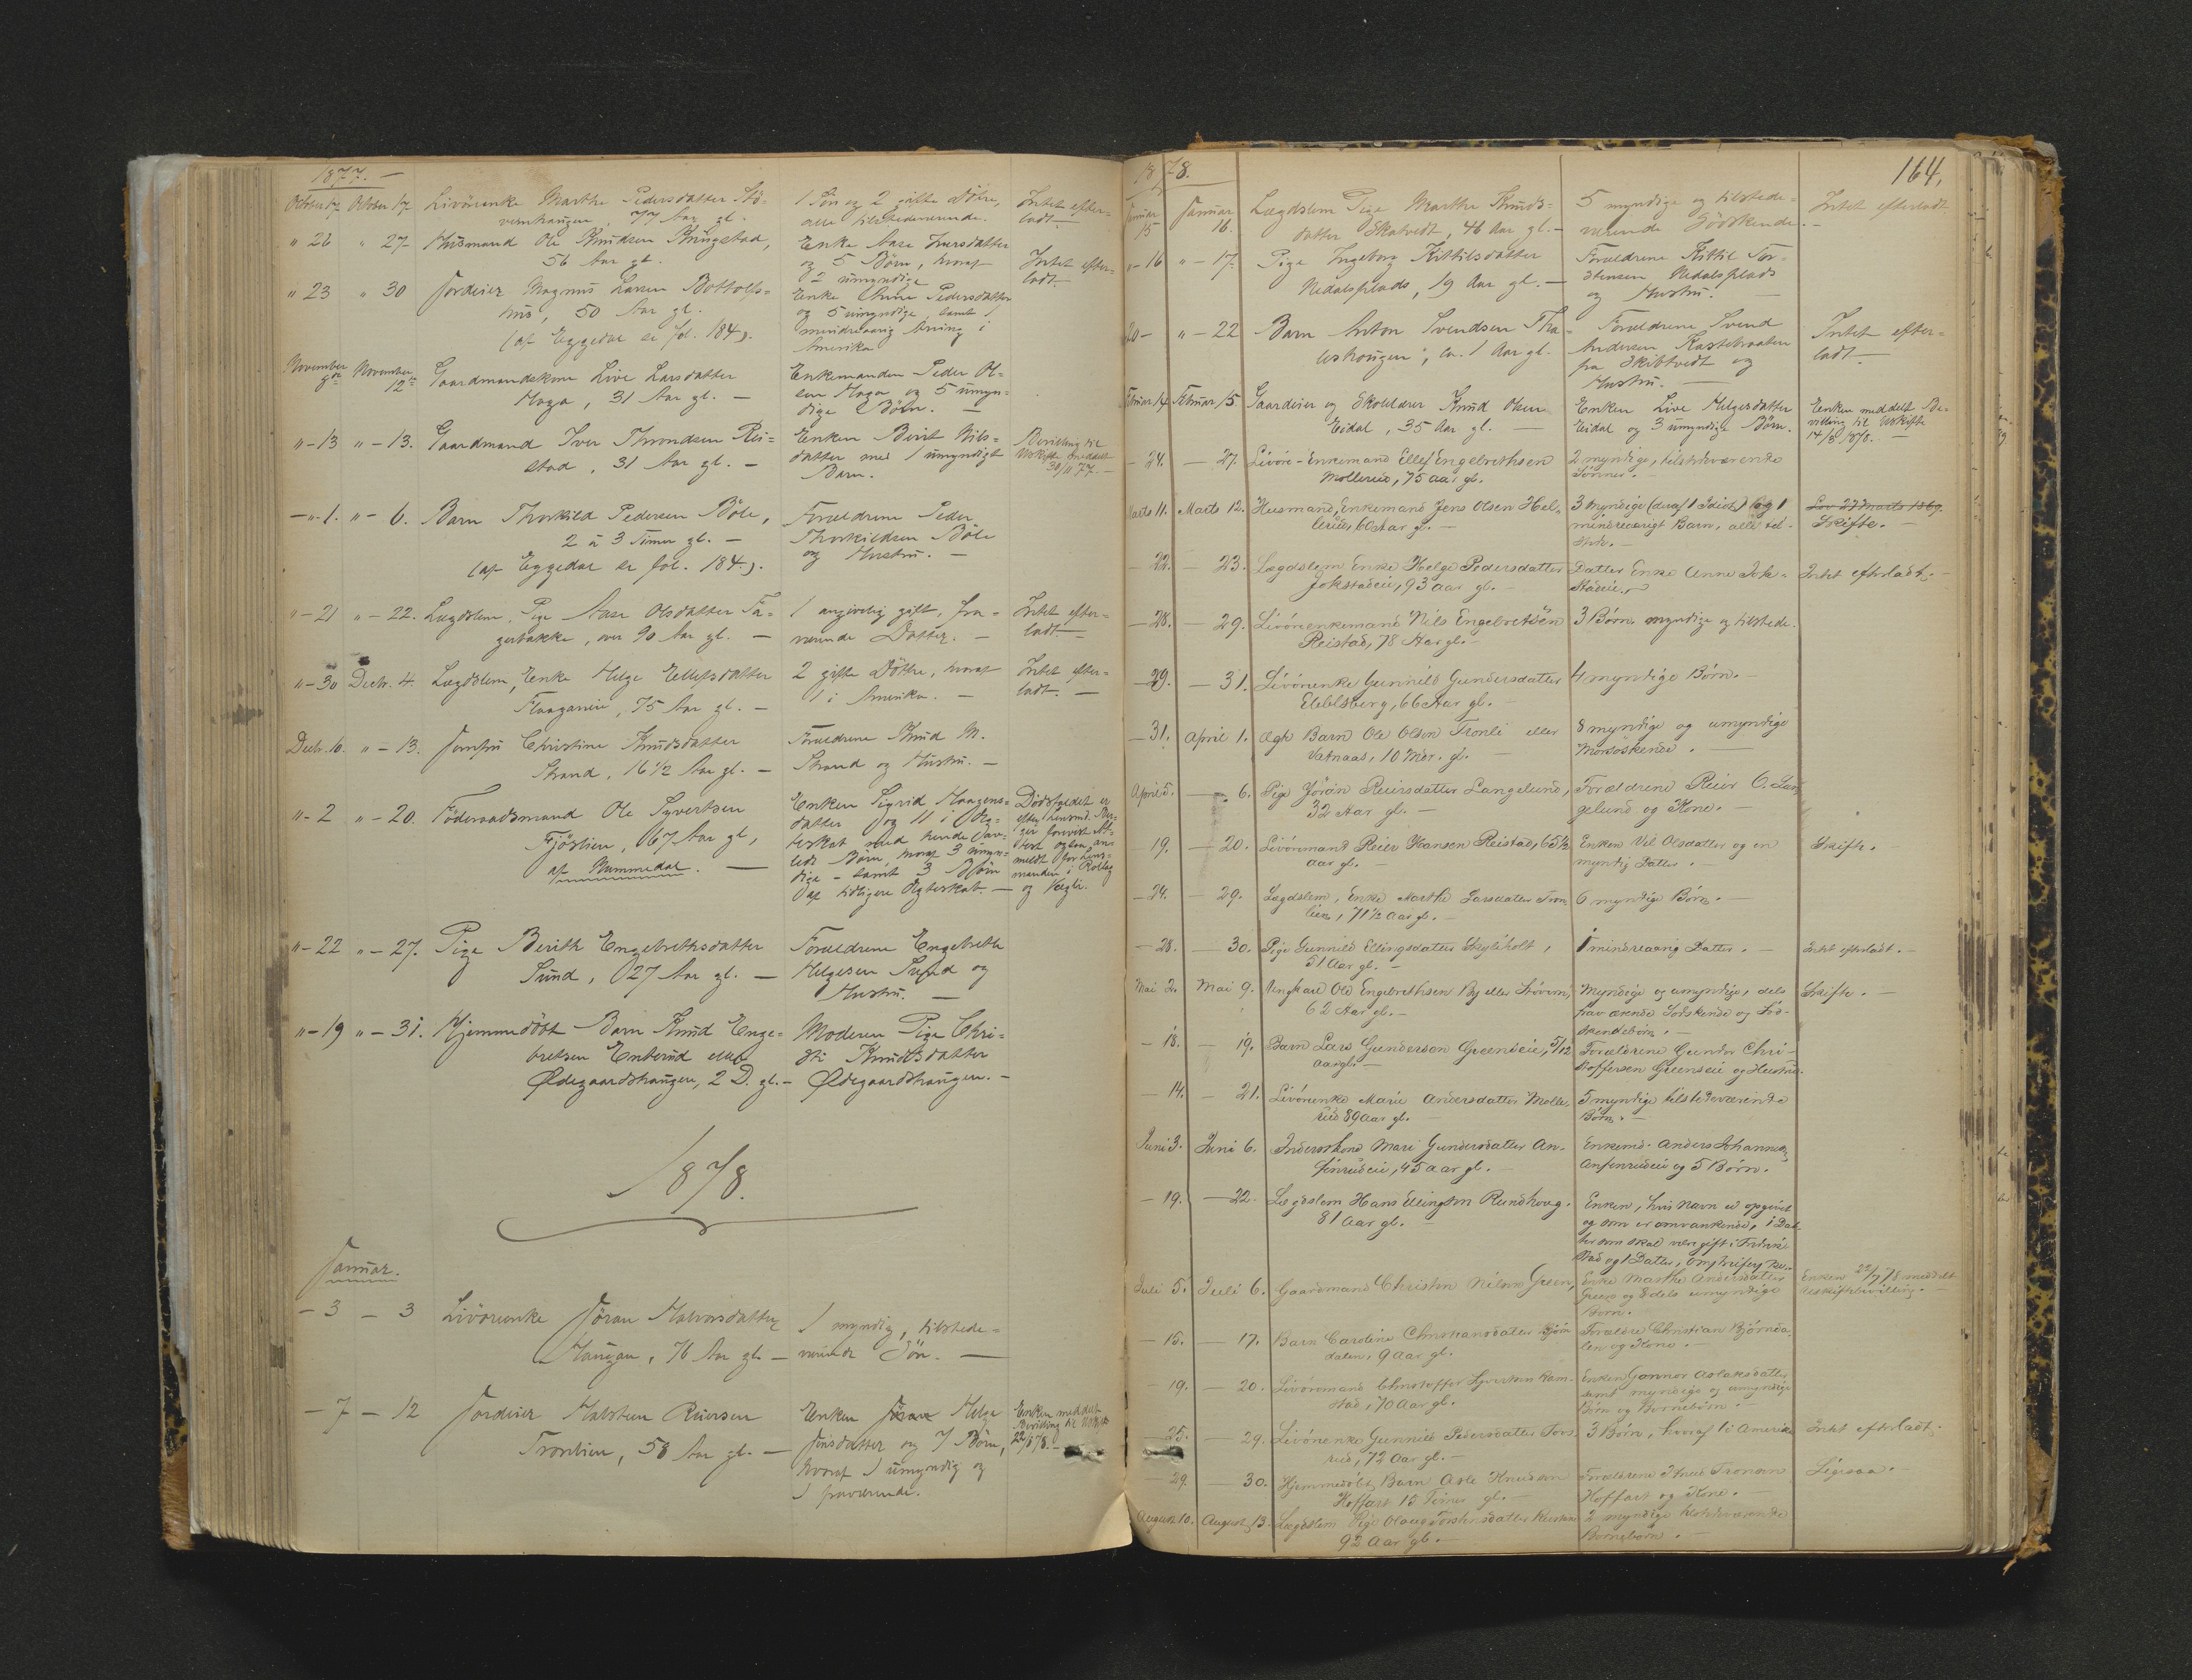 1877. —
October 17. October 17. Livörenke Marthe Pedersdatter Stö=
vernhaugen, 77 Aar gl.
1 Sön og 2 gifte Døtre,
alle tilstedeværende.
Intet efter=
ladt. —
" 26 " 27 Husmand Ole Knudsen Kungstad,
56 Aar gl.
Enke Aase Iversdatter
og 5 Börn, hvoraf
2 umyndige
Intet efter=
ladt. —
" 23 " 30 Jordeier Magnus Larsen Bottolfs=
hus, 50 Aar gl.
(af Eggedal se fol. 184).
Enke Anne Pedersdatter
og 5 umyndige, samt 1
mindreaarig Arving i
Amerika
November 9de November 12te Gaardmandskone Live Larsdatter
Haga, 31 Aar gl. —
Enkemanden Peder Ol=
sen Haga og 5 umyn=
dige Börn. —
" – 13 " – 13. Gaardmand Iver Throndsen Rei=
stad, 31 Aar gl. —
Enken Berit Nils=
datter med 1 umyndigt
Barn.
Bevilling til
Uskifte meddelt
30/11 77. —
— " – 1. " – 6. Barn Thorkild Pedersen Böle,
2 à 3 Timer gl. —
(af Eggedal se fol. 184.).
Forældrene Peder
Thorkildsen Böle
og Hustru. —
" – 21 " – 22. Lægdslem, Pige Aase Olsdatter Fa=
gerbakke, over 90 Aar gl. —
1 angivelig gift, fra=
værende Datter. —
Intet efter=
ladt. —
" – 30 Decbr. 4. Lægdslem, Enke Helge Ellefsdatter
Flaaganeie, 75 Aar gl. —
2 gifte Döttre, hvoraf
1 i Amerika. —
Intet efter=
ladt. —
Decbr. 10. " – 13. Jomfru Christine Knudsdatter
Strand, 16 1/2 Aar gl. —
Forældrene Knud M.
Strand og Hustru. —
" – 2 " – 20. Föderaadsmand Ole Syvertsen
Fjöslien, 67 Aar gl,
af Nummedal. —
Enken Sigrid Haagens=
datter og 11 i Æg=
teskab med hende Sam=
lede Börn, hvoraf 3 umyn=
dige – samt 3 Börn
af tidligere Ægteskab. —
Dödsfaldet er
meldt for Lens=
manden i Rollag
og Vægli.
" – 22 " – 27. Pige Berith Engebrethsdatter
Sund, 27 Aar gl. —
Forældrene Engebreth
Helgesen Sund og
Hustru. —
" – 19 " – 31. Hjemmedöbt Barn Knud Enge=
bretsen Enterud eller
Ødegaardshaugen, 2 D. gl. —
Moderen Pige Chri=
sti Knudsdatter
Ødegaardshaugen. —
1878.
Januar.
— 3 — 3 Livörenke Jöran Halvorsdatter
Haugan, 76 Aar gl. —
1 myndig, tilstede=
værende Sön. —
— 7 — 12 Jordeier Halsten Reiersen
Tronlien, 58 Aar gl. —
Enken Jöran Helge
Jonsdatter og 7 Börn,
hvoraf 1 umyndig og
1 fraværende.
Enken meddelt
Bevilling til Uskifte
22/1 78. —
1878.
164,
Januar 15 Januar 16. Lægdslem Pige Marthe Knuds=
datter Skatvedt, 46 Aar gl. —
5 myndige og tilstede=
værende Södskende. —
Intet efterladt
" – 16 " – 17. Pige Ingeborg Kittilsdatter
Nedalsplads, 19 Aar gl. —
Forældrene Kittil Tor=
stensen Nedalsplads
og Hustru. —
20 — " – 22 Barn Anton Svendsen Tha=
leshougen, ca. 1 Aar gl.
Forældrene Svend
Andersen Kastebraaten
fra Skibtvedt og
Hustru. —
Intet efter=
ladt. —
Februar 14 Februar 15 Gaardeier og Skolelærer Knud Olsen
Eidal, 35 Aar gl. —
Enken Live Helgesdatter
Eidal og 3 umyndige Börn.
Enken meddelt Be=
villing til Uskifte
14/3 1878. —
— 24. — 27. Livör-Enkemand Ellef Engebrethsen
Mollerud, 75 aar gl.
2 myndige, tilstedeværende
Sönner.
Marts 11. Marts 12. Husmand, Enkemand Jens Olsen Hel=
lerud, 60 Aar gl. —
3 Myndige (deraf 1 Idiot) og 1
mindreaarigt Barn, alle til-
stede. —
Lov 27 Marts 1869.
Skifte. —
— 22. — 23. Lægdslem Enke Helge Pedersdatter
Jokstadeie, 93 aar gl. —
Datter Enke Anne Jok-
stadeie.
Intet efterladt. —
— 28. — 29. Livörenkemand Nils Engebretsen
Reistad, 78 Aar gl. —
3 Börn, myndige og tilstede.
— 29. — 31. Livörenke Gunnild Gundersdatter
Eleblsberg, 66 Aar gl. —
4 myndige Börn. —
— 31. April 1. Ægte Barn Ole Olsen Tronli eller
Vatnaas, 10 Mdr. gl. —
8 myndige og umyndige
Morsöskende. —
April 5. — 6. Pige Jöran Reiersdatter Langelund,
32 Aar gl. —
Forældrene Reier O. Lan
gelund og Kone. —
19. — 20. Livöremand Reier Hansen Reistad, 65 1/2
aar gl. —
Enken Vel Olsdatter og en
myndig Datter. —
Skifte. —
— 24. — 29. Lægdslem, Enke Marthe Larsdatter Tron
lien, 71 1/2 aar gl. —
6 myndige Börn. —
— 28. — 30. Pige Gunnild Ellingsdatter Skjelholt,
51 Aar gl. —
1 mindreaarig Datter. —
Intet efterladt. —
Mai 2. Mai 9. Ungkarl Ole Engebrethsen By eller Stövern,
62 Aar gl. —
Myndige og umyndige, dels
fraværende Södskende og Söd-
skendebörn. —
Skifte. —
— 18. — 19. Barn Lars Gundersen Greenseie, 5/12
aar gl. —
Forældrene Gunder Chri-
stoffersen Greenseie og Hustru.
— 14. — 21. Livörenke Marie Andersdatter Molle,
rud 89 aar gl. —
5 myndige tilstedeværende
Börn. —
Juni 3. Juni 6. Inderstkone Mari Gundersdatter An-
finrudeie, 45 aar gl. —
Enkemd. Anders Johannes.
Anfinrudeie og 5 Börn.
— 19. — 22. Lægdslem Hans Ellingsen Rundhoug.
81 aar gl. —
Enken, hvis Navn ei opgivet
og som er omvankende, 1 Dat-
ter som skal være gift i Fredrik
stad og 1 Datter,
Juli 5. Juli 6. Gaardmand Christen Nilsen Green,
Enke Marthe Andersdatter
Green og 8 dels umyndige
Börn.
Enken 22/7 78 meddelt
Uskiftebevilling. —
— 15. — 17. Barn Caroline Christiansdatter Björn
dalen, 9 aar gl.
Forældre Christian Björnda
len og Kone. —
19. — 20. Livöremand Christoffer Syvertsen Ram-
stad, 70 Aar gl.
Enken Gonnor Aslaksdatter
samt myndige og umyndige
Börn og Börnebörn. —
— 25. — 29. Livörenke Gunnild Pedersdatter Fors
rud, 72 Aar gl. —
3 Börn, hvoraf 1 i Amerika
Intet efterladt.
29. — 30. Hjemmedöbt Barn Asle Knudsen
Hoffart 15 Timer gl. —
Forældrene Knud Tronsen
Hoffart og Kone. —
Ligesaa. —
August 10. August 13. Lægdslem Pige Olaug Torstensdatter
92 Aar gl. —
2 myndige tilstedeværende
Börnebörn. —